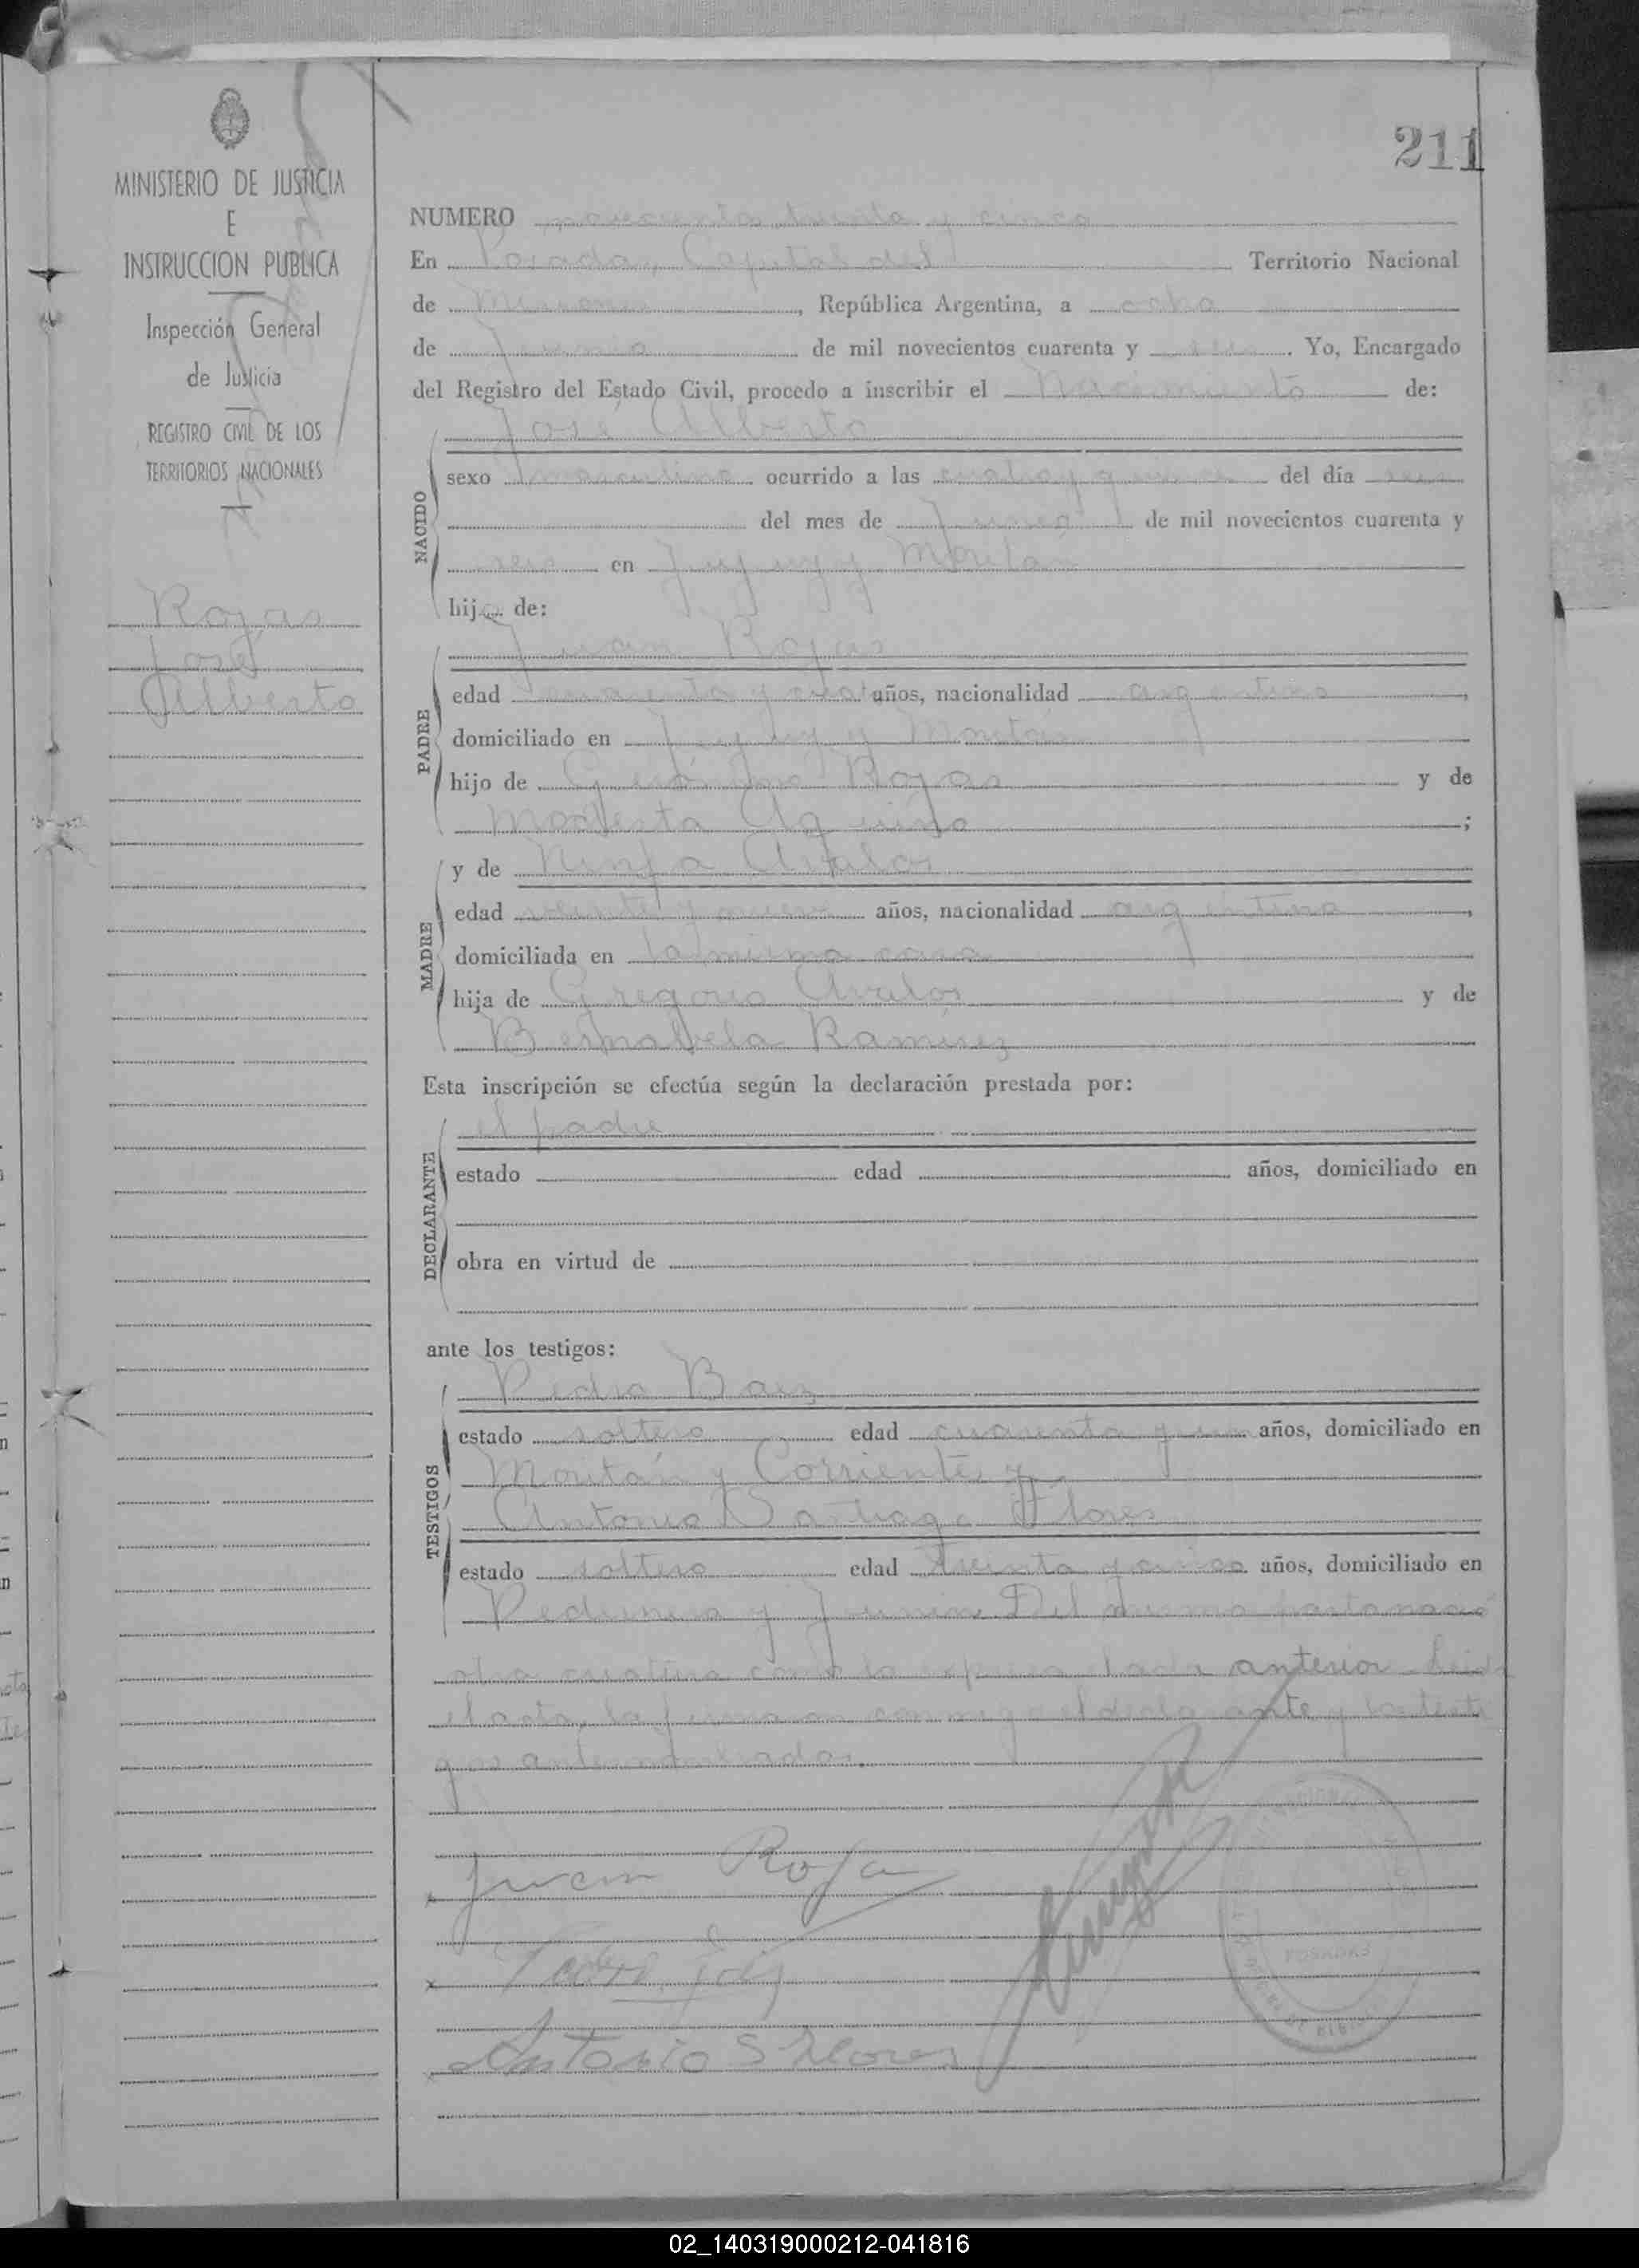 MINISTERIO DE JUSTICIA
E
INSTRUCCION PUBLICA
Inspección General
de Justicia
REGISTRO CIVIL DE LOS
TERRITORIOS NACIONALES
Rojas
José
Alberto
211
NUMERO novecientos treinta y cinco
En Posadas, Capital del Territorio Nacional
de Misiones, República Argentina, a ocho
de Junio de mil novecientos cuarenta y seis. Yo, Encargado
del Registro del Estado Civil, procedo a inscribir el Nacimiento de:
José Alberto
NACIDO
sexo masculino ocurrido a las cuatro y quince del día seis
del mes de Junio de mil novecientos cuarenta y
seis en Jujuy y Moritán
hijo de:
Juan Rojas
PADRE
edad cuarenta y años, nacionalidad argentino,
domiciliado en Jujuy y Moritán
hijo de Gerónimo Rojas y de
Modesta Aquino;
y de Ninfa Avalos
MADRE
edad veinte y nueve años, nacionalidad argentina,
domiciliada en la misma casa
hija de Gregorio Avalos y de
Bernabela Ramírez
Esta inscripción se efectúa según la declaración prestada por:
el padre
DECLARANTE
estado edad años, domiciliado en
obra en virtud de
ante los testigos:
Pedro Baez
TESTIGOS
estado soltero edad cuarenta y un años, domiciliado en
Moritán y Corrientes y
Antonio Santiago Flores
estado soltero edad treinta y cinco años, domiciliado en
y Junin. Del mismo parto nació
otra criatura anterior. Leida
el acta, la firmaron conmigo el declarante y los testi
gos antenombrados.
Juan Roja
Antonio S Flores
POSADAS
02_140319000212-041816